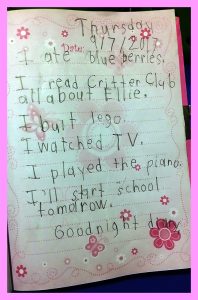 Thursday
Date: 9/7/2017
I ate blueberries.
I read Critter Club
all about Ellie.
I built lego.
I watched TV.
I played the piano.
I'll start school
tomorow.
Goodnight diary